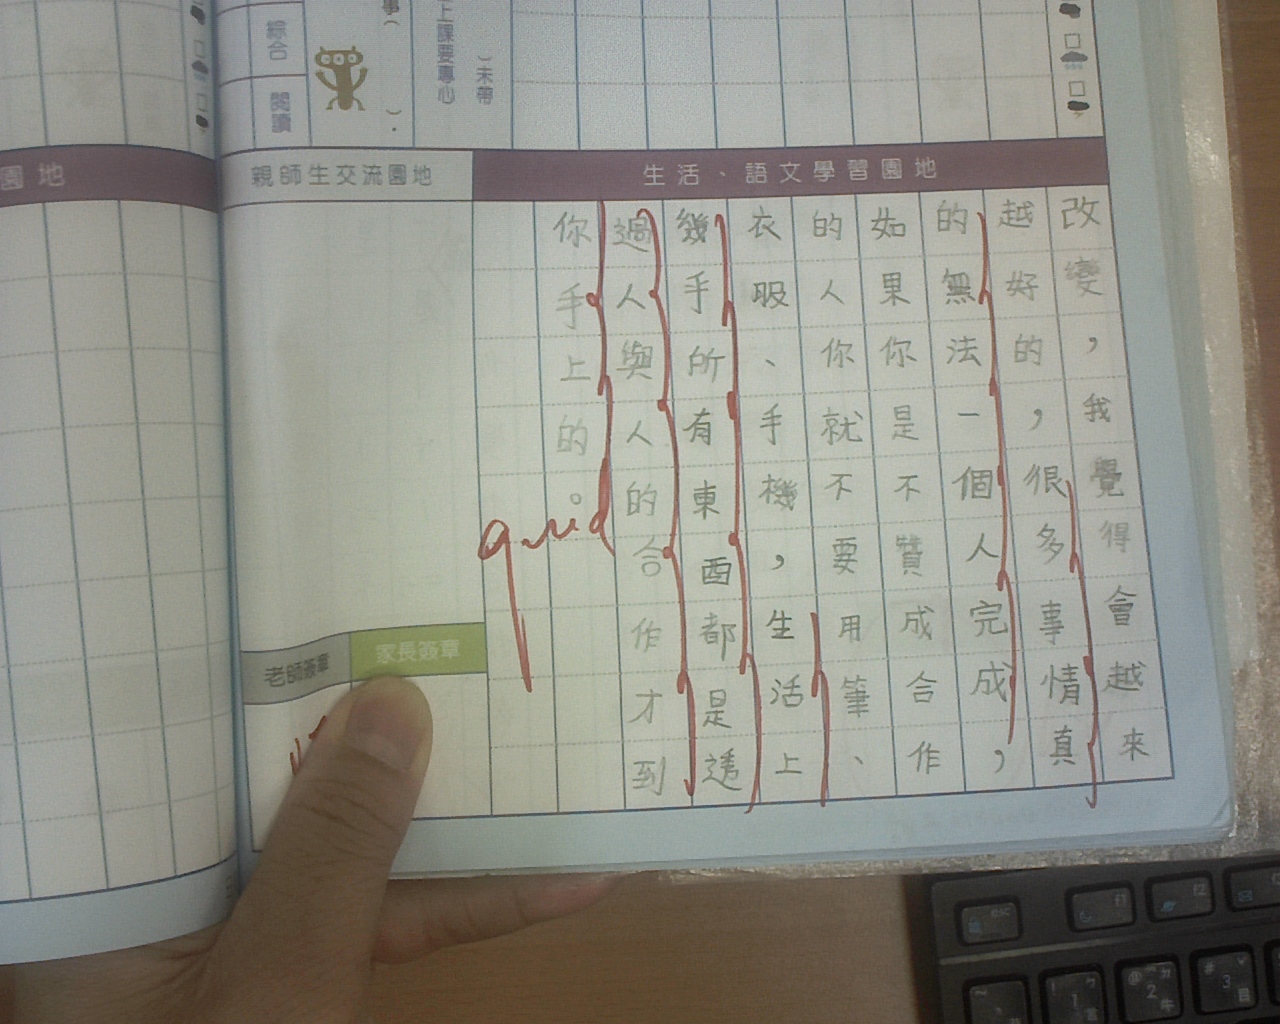 綜合
閱讀
上課要專心
）未帶
園地
親師生交流園地
生活、語文學習園地
改變，我覺得會越來
越好的，很多事情真
的無法一個人完成，
如果你是不贊成合作
的人你就不要用筆、
衣服、手機，生活上
幾乎所有東西都是透
過人與人的合作才到
你手上的。
good
老師簽章
家長簽章